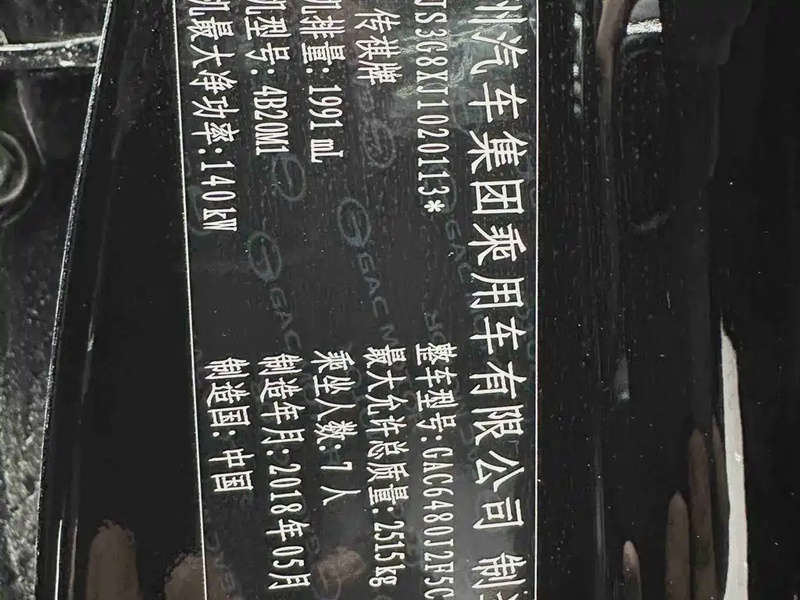 州汽车集团乘用车有限公司 制
JS3G8XJ1020113*
整车型号:GAC6480J2F5C
传祺牌
最大允许总质量:2515kg
机排量:1991 mL
乘坐人数:7人
机型号:4B20M1
制造年月:2018年05月
机最大净功率:140kW
制造国:中国
GAC M
GAC